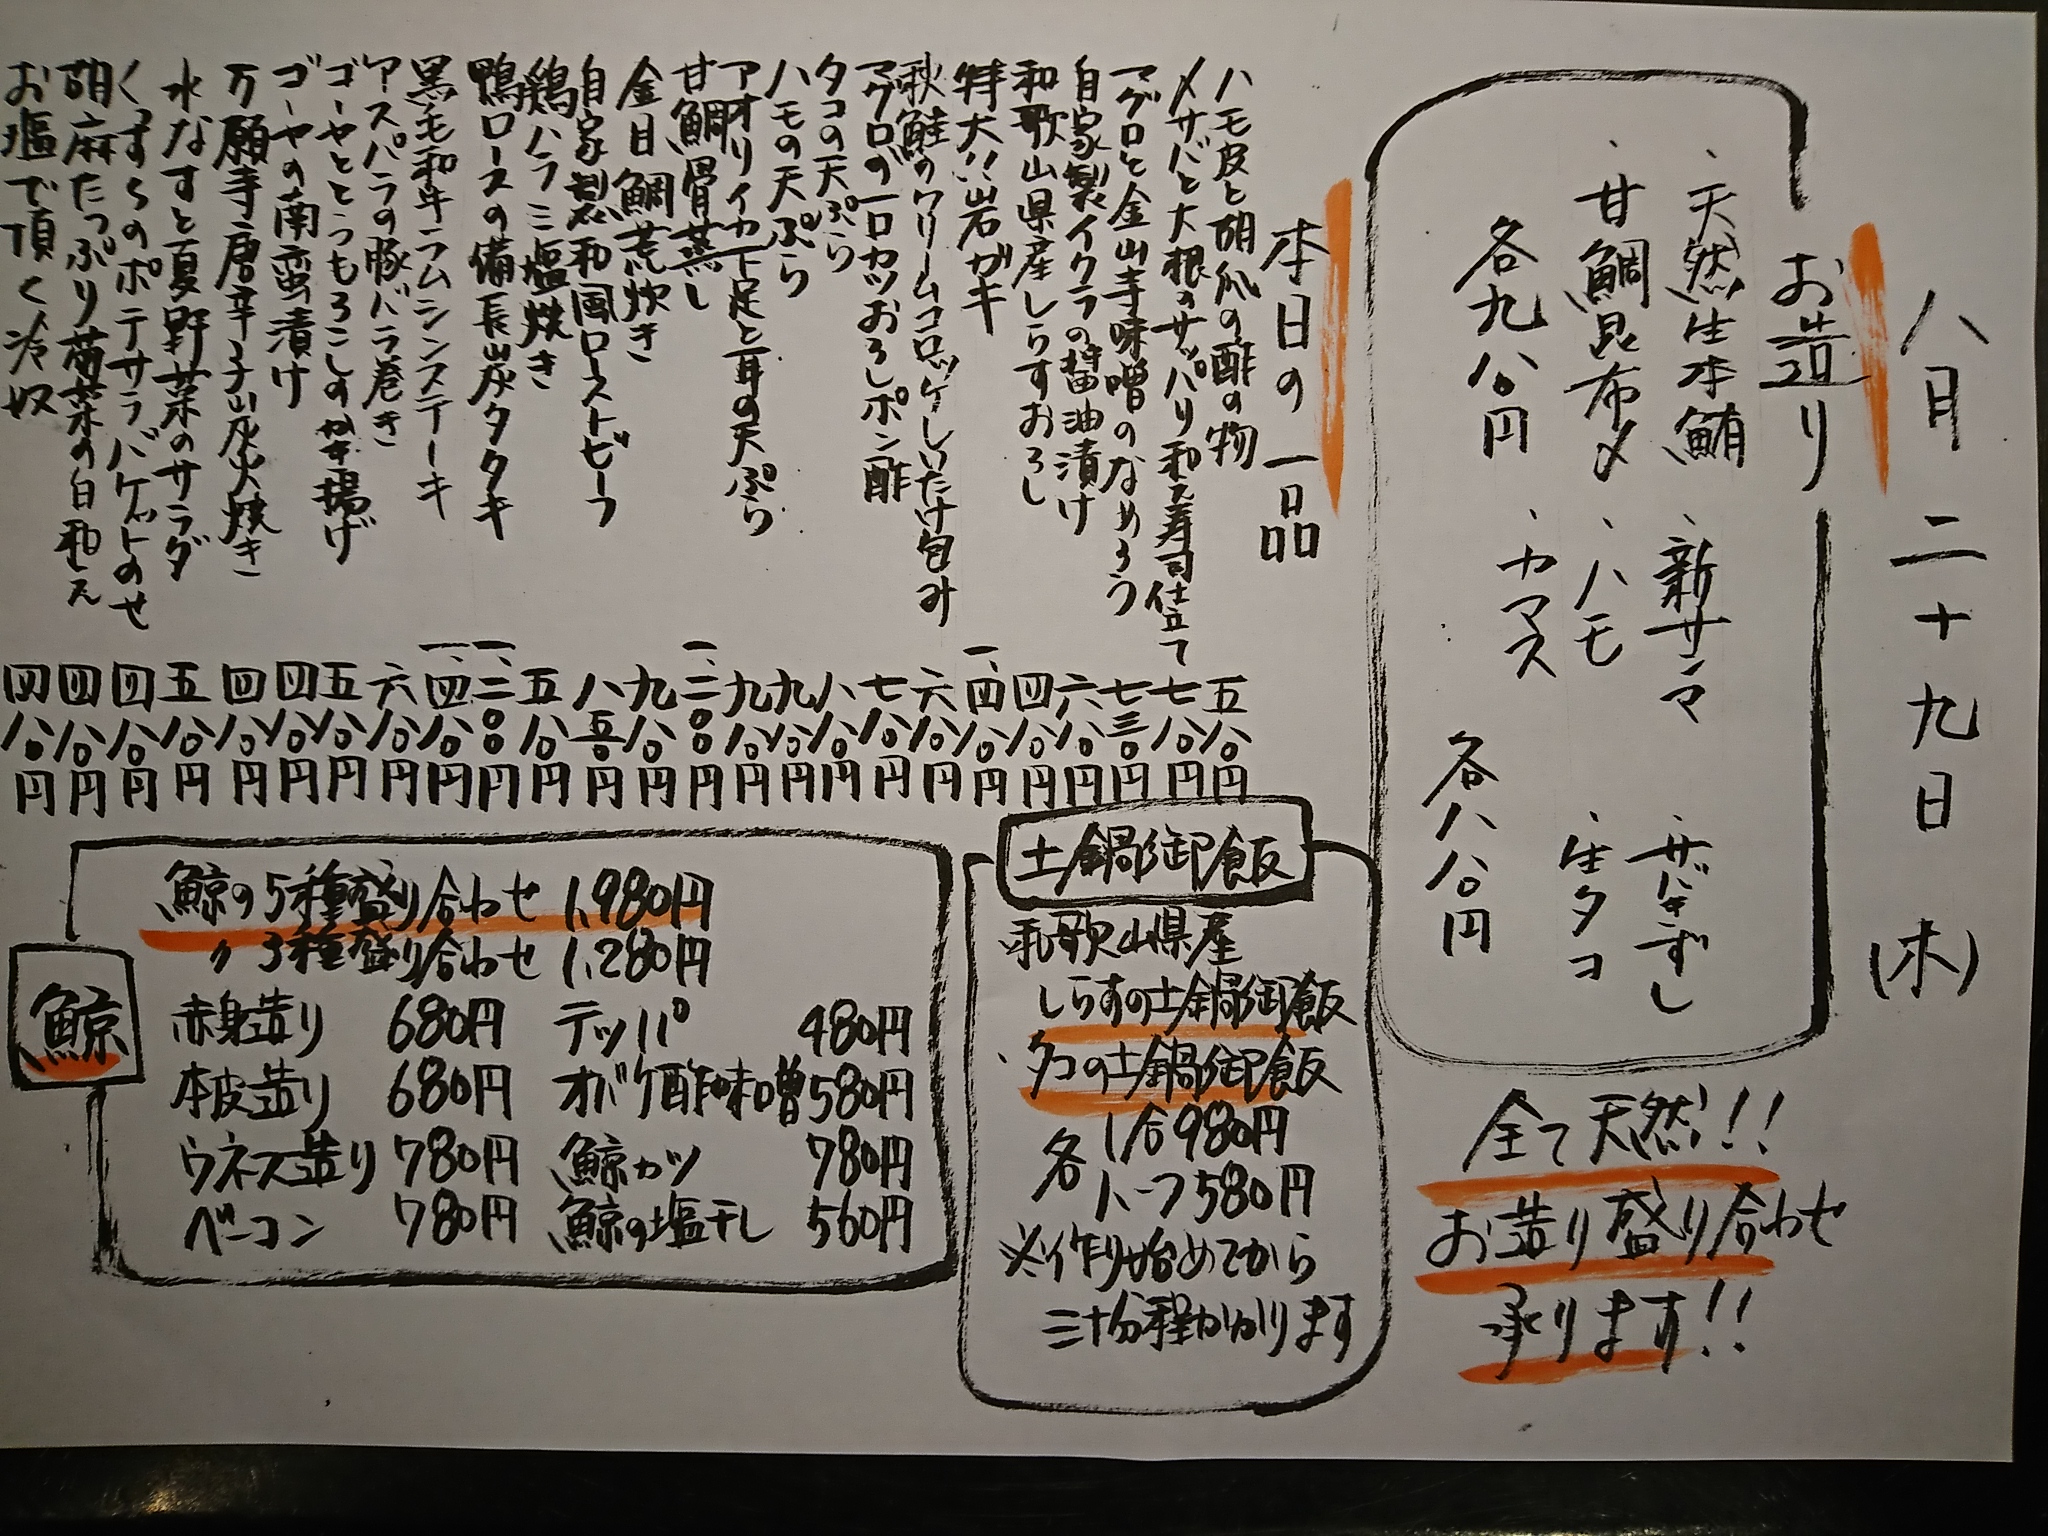 八月二十九日(木)
お造り
、天然生本鮪
、甘鯛昆布〆
各九八〇円
、新サンマ
、ハモ
、カマス
、サバきずし
、生タコ
各八八〇円
全て天然!!
お造り盛り合わせ
承ります!!
本日の一品
ハモ皮と胡瓜の酢の物 五八〇円
〆サバと大根のサッパリ和え寿司仕立て 七八〇円
マグロと金山寺味噌のなめろう 七三〇円
自家製イクラの醤油漬け 六八〇円
和歌山県産しらすおろし 四八〇円
特大!!岩ガキ 一、四八〇円
秋鮭のクリームコロッケしいたけ包み 六八〇円
マグロの一口カツおろしポン酢 七八〇円
タコの天ぷら 八八〇円
ハモの天ぷら 九八〇円
アオリイカ下足と耳の天ぷら 九八〇円
甘鯛骨蒸し 一、二〇〇円
金目鯛荒炊き 九八〇円
自家製和風ローストビーフ 八五〇円
鶏ハラミ塩焼き 五八〇円
鴨ロースの備長炭タタキ 一、二〇〇円
黒毛和牛ラムシンステーキ 一、四八〇円
アスパラの豚バラ巻き 六八〇円
ゴーヤととうもろこしのかき揚げ 五八〇円
ゴーヤの南蛮漬け 四八〇円
万願寺唐辛子炭火焼き 四八〇円
水なすと夏野菜のサラダ 五八〇円
くずらのポテサラバケットのせ 四八〇円
胡麻たっぷり菊菜の白和え 四八〇円
お塩で頂く冷奴 四八〇円
土鍋御飯
和歌山県産
しらすの土鍋御飯
、タコの土鍋御飯
各 1合980円
ハーフ580円
※作り始めてから
三十分程かかります
鯨
鯨の5種盛り合わせ 1,980円
〃3種盛り合わせ 1,280円
赤身造り 680円 テッパ 480円
本皮造り 680円 オバケ酢味噌 580円
ウネス造り 780円 鯨カツ 780円
ベーコン 780円 鯨の塩干し 560円